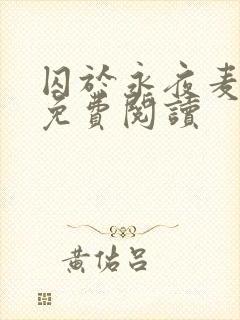 囚於永夜麦
免費閱讀
黃佑呂